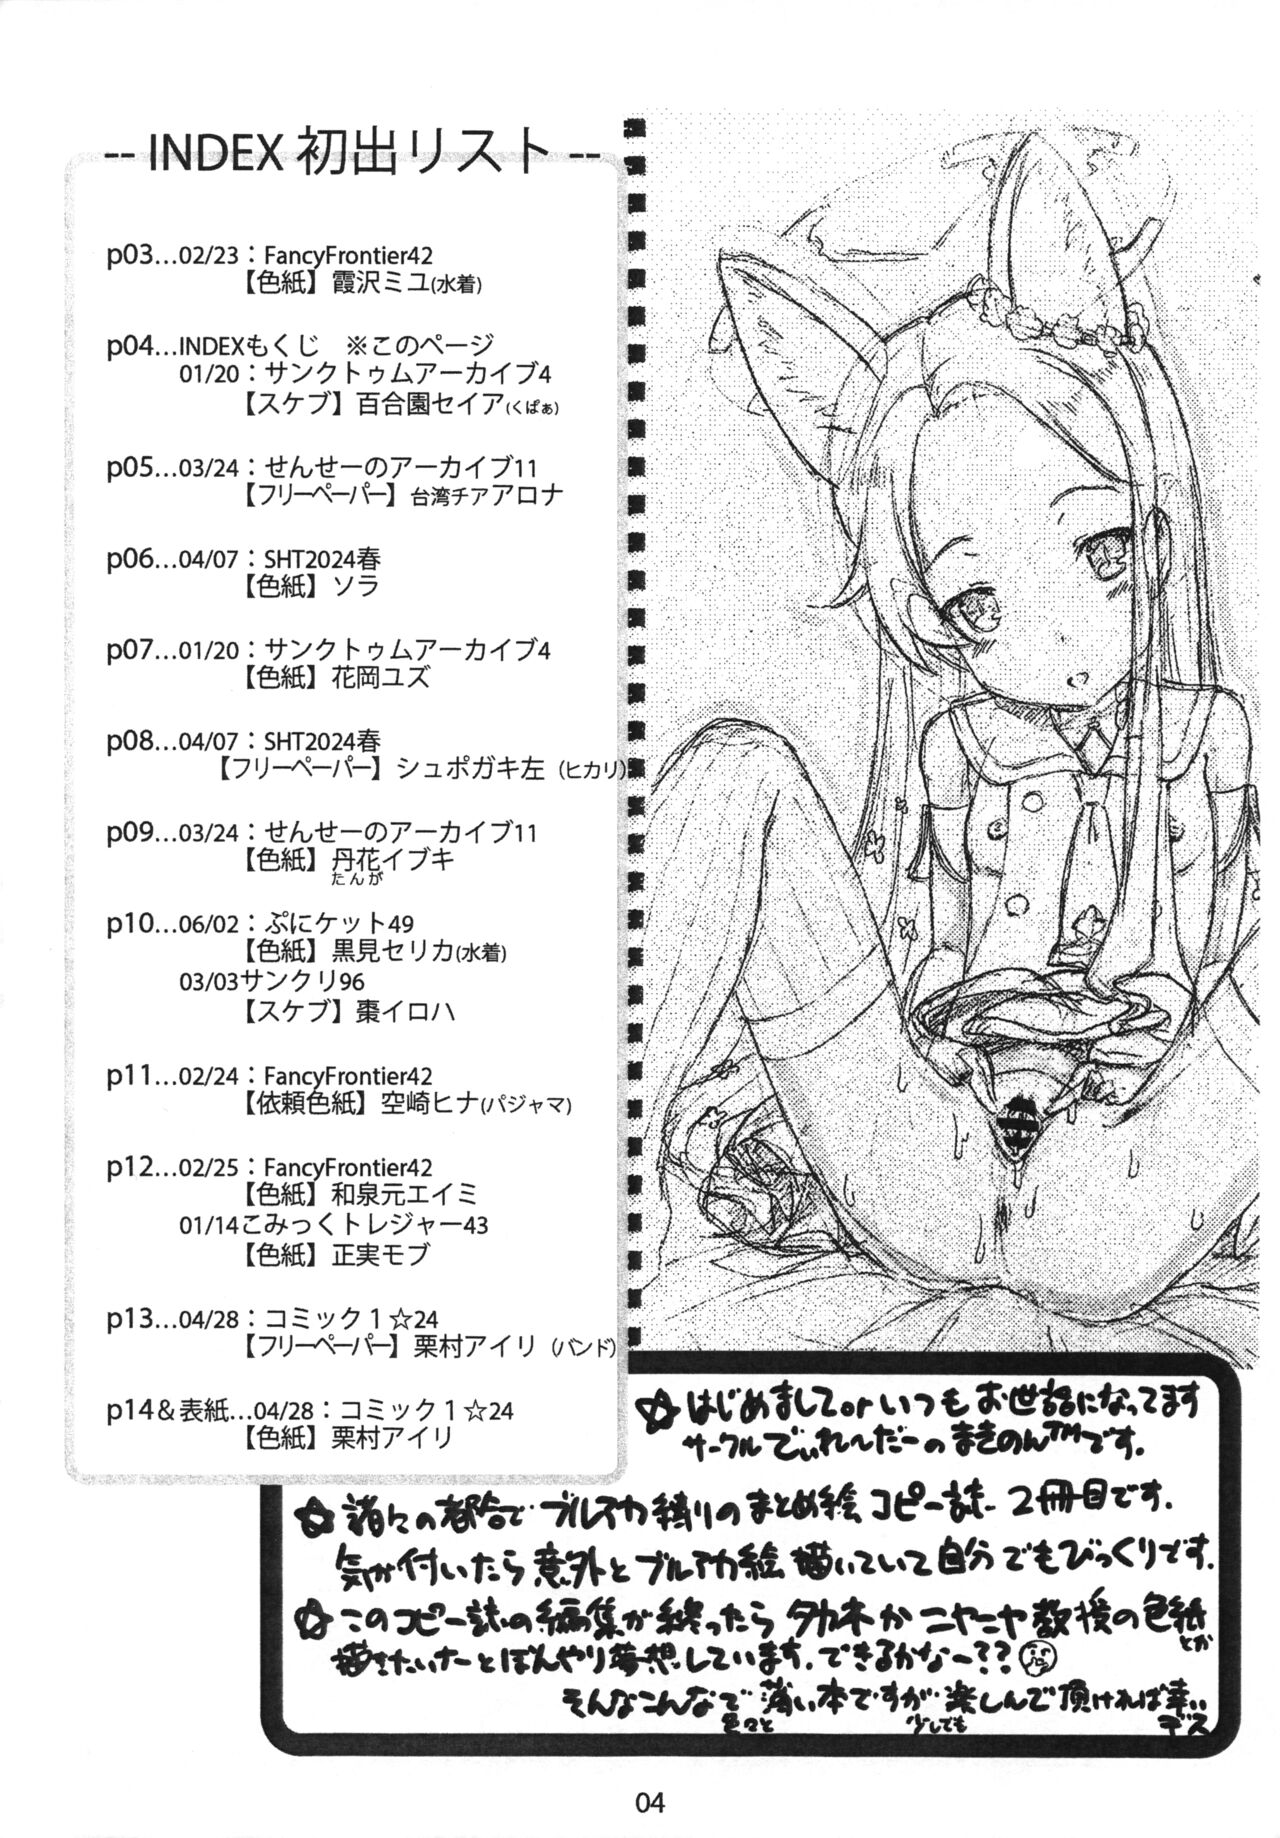 -- INDEX 初出リスト --
p03...02/23：FancyFrontier42
【色紙】霞沢ミユ(水着)
p04...INDEXもくじ　※このページ
01/20：サンクトゥムアーカイブ4
【スケブ】百合園セイア(くぱぁ)
p05...03/24：せんせーのアーカイブ11
【フリーペーパー】台湾チアアロナ
p06...04/07：SHT2024春
【色紙】ソラ
p07...01/20：サンクトゥムアーカイブ4
【色紙】花岡ユズ
p08...04/07：SHT2024春
【フリーペーパー】シュポガキ左（ヒカリ）
p09...03/24：せんせーのアーカイブ11
【色紙】丹花イブキ
たんが
p10...06/02：ぷにケット49
【色紙】黒見セリカ(水着)
03/03サンクリ96
【スケブ】棗イロハ
p11...02/24：FancyFrontier42
【依頼色紙】空崎ヒナ(パジャマ)
p12...02/25：FancyFrontier42
【色紙】和泉元エイミ
01/14こみっくトレジャー43
【色紙】正実モブ
p13...04/28：コミック１☆24
【フリーペーパー】栗村アイリ（バンド）
p14＆表紙...04/28：コミック１☆24
【色紙】栗村アイリ
☆はじめましてorいつもお世話になってます
サークルでぃれ〜だーのまきのん™です。
☆諸々の都合でブルアカ縛りのまとめ絵コピー誌2冊目です。
気が付いたら意外とブルアカ絵描いていて自分でもびっくりです。
☆このコピー誌の編集が終ったらタカネかニヤニヤ教授の色紙とか
描きたいなーとぼんやり夢想しています。できるかなー??
そんなこんなで薄い本ですが楽しんで頂ければ幸い
色々と 少しでも デス
04